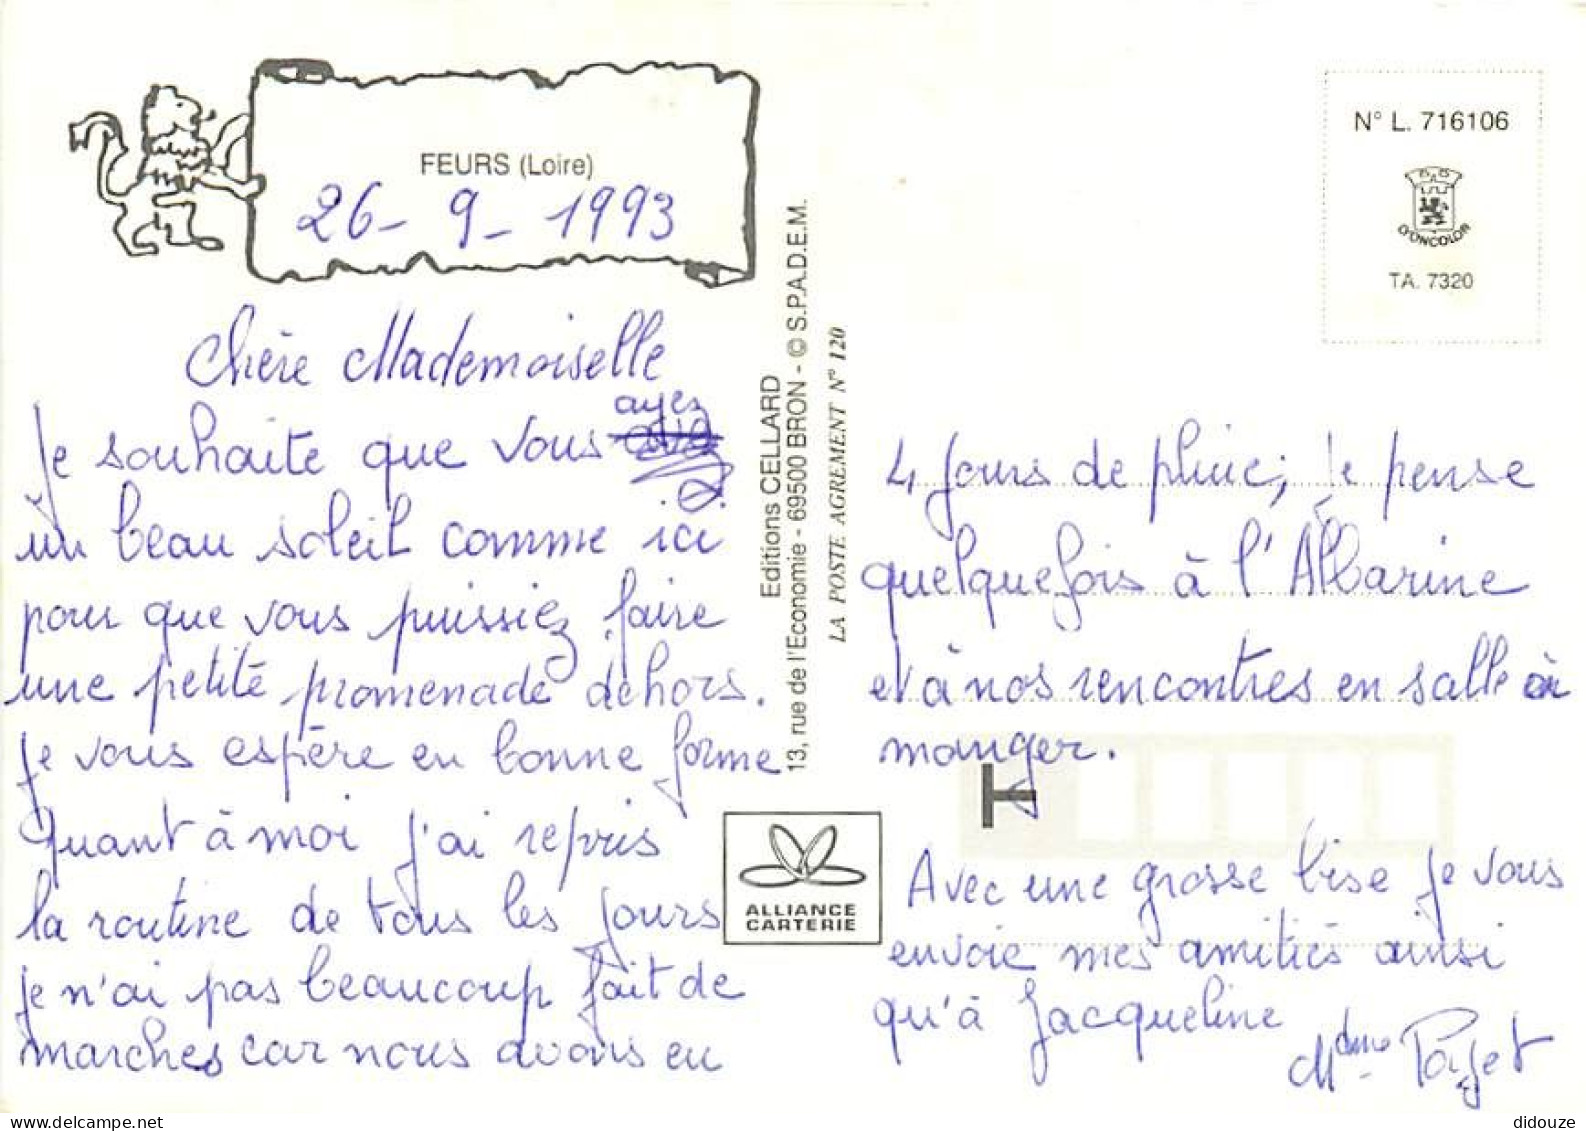 FEURS (Loire)
26 - 9 - 1993
Chère Mademoiselle
ayez
Je souhaite que vous
un beau soleil comme ici
pour que vous puissiez faire
une petite promenade dehors.
Je vous espère en bonne forme
Quant à moi j'ai repris
la routine de tous les jours
je n'ai pas beaucoup fait de
marches car nous avons eu
Editions CELLARD
13, rue de l'Economie - 69500 BRON - © S.P.A.D.E.M.
LA POSTE AGREMENT N° 120
ALLIANCE
CARTERIE
N° L. 716106
D'ONCOLOR
TA. 7320
4 jours de pluie; je pense
quelquefois à l'Albarine
et à nos rencontres en salle à
manger.
Avec une grosse bise je vous
envoie mes amitiés ainsi
qu'à Jacqueline
Mdme
didouze